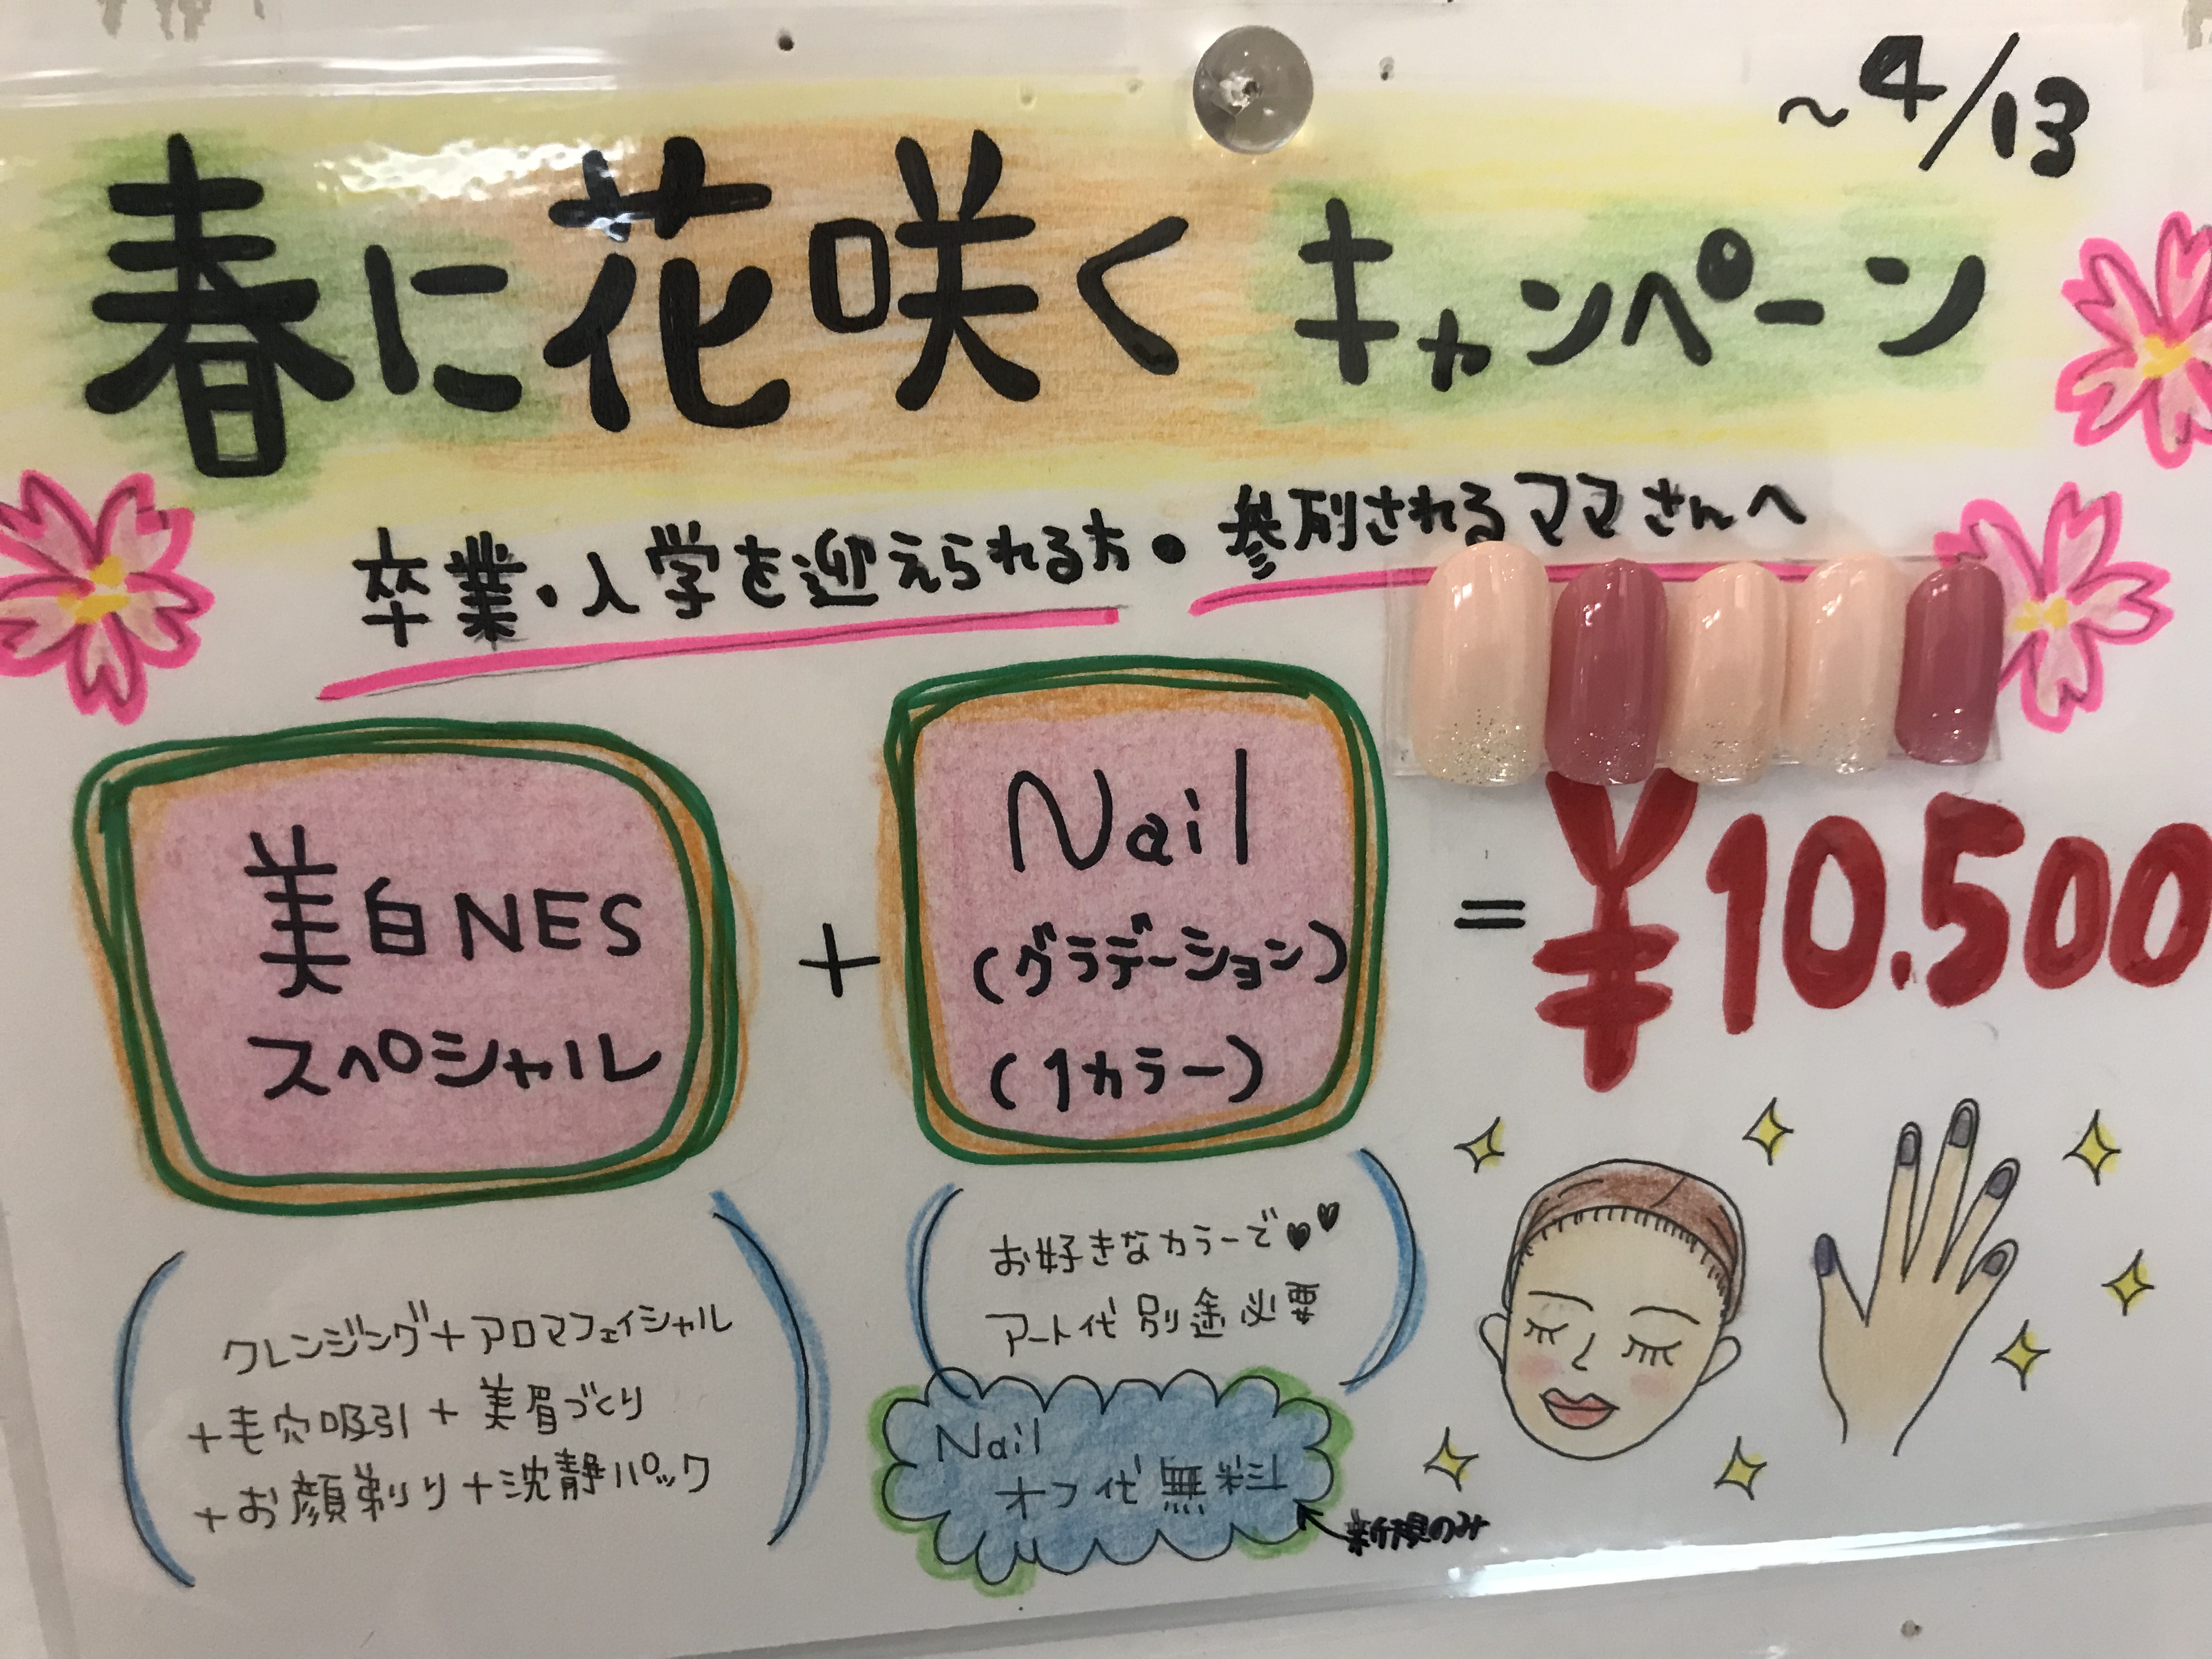 ~4/13
春に花咲くキャンペーン
卒業・入学を迎えられる方・参列されるママさんへ
美白NES
スペシャル
+
Nail
(グラデーション)
(1カラー)
=¥10.500
クレンジング+アロマフェイシャル
+毛穴吸引+美眉づくり
+お顔剃り+沈静パック
お好きなカラーで♥♥
アート代別途必要
Nail
オフ代無料
新規のみ